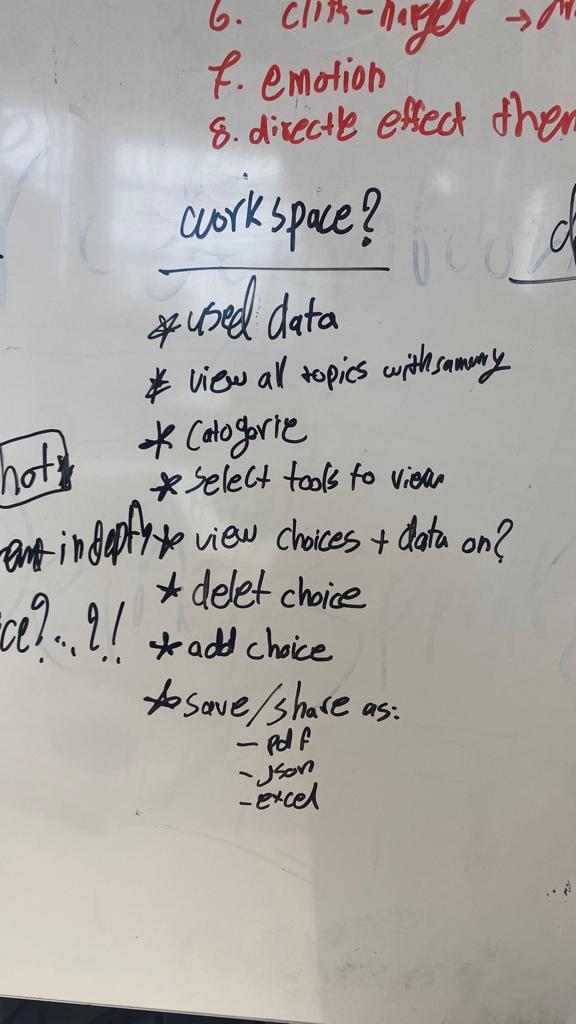 6. cliff-hanger →
7. emotion
8. directle effect
workspace?
* used data
* view all topics with sammry
* Catogorie
* select tools to view
hot
in depth
* view choices + data on?
* delet choice
ice?...?!
* add choice
* save/share as:
- pdf
- json
- excel